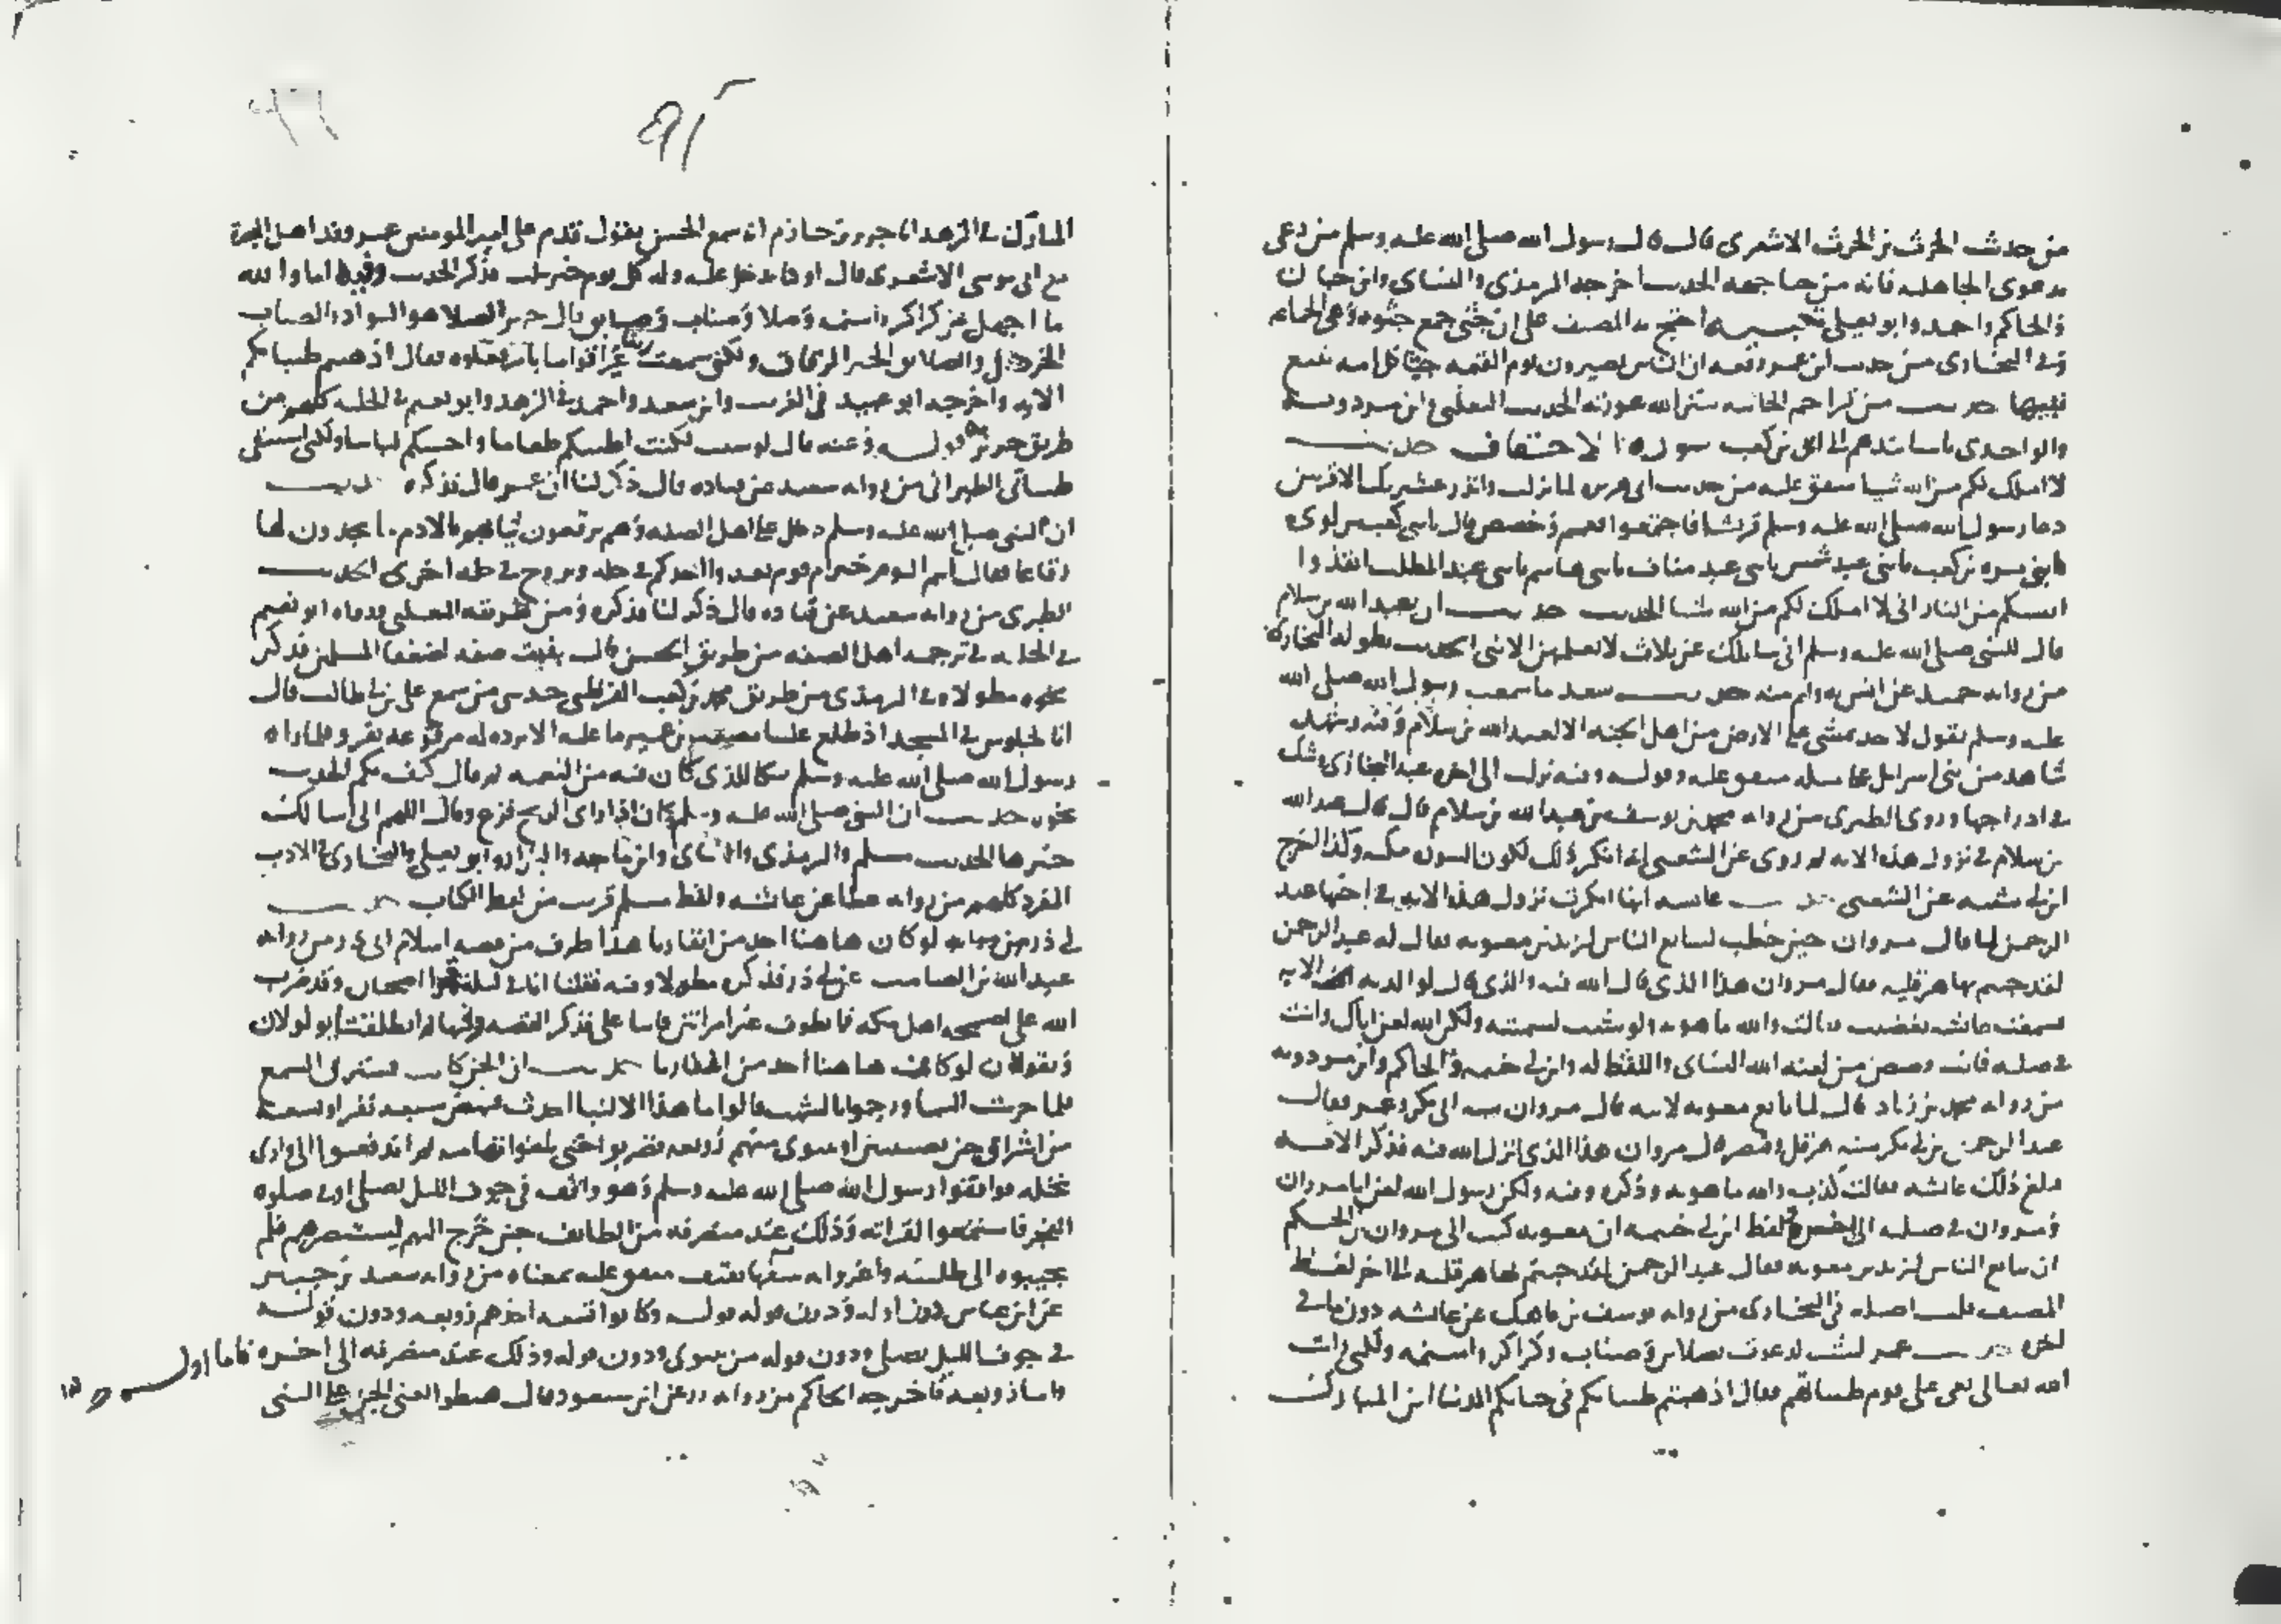 من حديث الحرث بن الحرث الاشعرى قال قال رسول الله صلى الله عليه وسلم من دعى
بدعوى الجاهليه فانه من جثا جهنم الحديث اخرجه الترمذى والنساى وابن حبان
والحاكم واحمد وابو يعلى احتج به المصنف على ان جثى جمع جثوه وهى الجماعه
وفى البخارى من حديث ابن عمر رفعه ان الناس يصيرون يوم القيمه جثا كل امه تتبع
نبيها حديث من قرا حم الجاثيه ستر الله عورته الحديث الثعلبى وابن مردويه
والواحدى باسانيدهم الى ابى بن كعب سورة الاحقاف حديث
لا املك لكم من الله شيا متفق عليه من حديث ابى هريره لما نزلت وانذر عشيرتك الاقربين
دعا رسول الله صلى الله عليه وسلم قريشا فاجتمعوا فعم وخصص قال يا بنى كعب بن لوى
يا بنى مره بن كعب يا بنى عبد شمس يا بنى عبد مناف يا بنى هاشم يا بنى عبد المطلب انقذوا
انفسكم من النار انى لا املك لكم من الله شيا الحديث حديث ان عبد الله بن سلام
قال للنبى صلى الله عليه وسلم انى سايلك عن ثلاث لا يعلمهن الا نبى الحديث بطوله البخارى
من روايه حميد عن انس به واتم منه حديث سعد ما سمعت رسول الله صلى الله
عليه وسلم يقول لاحد يمشى على الارض من اهل الجنه الا لعبد الله بن سلام وفيه وشهد
شاهد من بنى اسرائل على مثله متفق عليه وقوله وفيه نزلت الى اخره عند البخارى وشك
فى ادراجها وروى الطبرى من روايه محمد بن يوسف بن عبد الله بن سلام قال قال عبد الله
بن سلام فى نزول هذه الايه ثم روى عن الشعبى انه انكر ذلك لكون السوره مكيه وكذا اخرج
ابن ابى شيبه عن الشعبى حديث عائشه انها انكرت نزول هذه الايه فى اخيها عبد
الرحمن لما قال مروان حين خطب لبيايع الناس ليزيد بن معويه فقال له عبد الرحمن
لقد جيتم بها هرقليه فقال مروان هذا الذى قال الله فيه والذى قال لوالديه اف الايه
فسمعت عائشه فغضبت وقالت والله ما هو به ولو شيت لسميته ولكن الله لعن اباك وانت
فى صلبه فانت فضض من لعنه الله النساى واللفظ له وابن ابى خيثمه والحاكم وابن مردويه
من روايه محمد بن زياد قال لما بايع معويه لابنه قال مروان سنه ابى بكر وعمر فقال
عبد الرحمن بن ابى بكر سنه هرقل وقيصر قال مروان هذا الذى انزل الله فيه فذكر الايه
فبلغ ذلك عائشه فقالت كذب والله ما هو به وذكره وفيه ولكن رسول الله لعن ابا مروان
ومروان فى صلبه الى اخره ولفظ ابن ابى خيثمه ان معويه كتب الى مروان بن الحكم
ان يبايع الناس ليزيد بن معويه فقال عبد الرحمن لقد جيتم بها هرقليه الى اخر لفظ
المصنف قلت اصله فى البخارى من روايه يوسف بن ماهك عن عائشه دون ما فى
اخره حديث عمر لو شيت لدعوت بصلايق وصناب وكراكر واسنمه ولكنى رايت
الله تعالى نعى على قوم طيباتهم فقال اذهبتم طيباتكم فى حياتكم الدنيا ابن المبارك
المبارك فى الزهد انا جرير بن حازم انه سمع الحسن يقول قدم على امير المومنين عمر وفد اهل البصرة
مع ابى موسى الاشعرى قال فذكر الحديث وفيه اما والله
ما اجهل عن كراكر واسنمه وصلا وصناب وصلايق قال جرير الصلا هو الشواء والصناب
الخردل والصلايق الخبز الرقاق ولكنى سمعت عير اقواما بامر فعلوه فقال اذهبتم طيباتكم
الايه واخرجه ابو عبيد فى الغريب وابن سعد واحمد فى الزهد وابو نعيم فى الحليه كلهم من
طريق جرير قوله وعنه قال لو شيت لكنت اطيبكم طعاما واحسنكم لباسا ولكنى استبقى
طيباتى الطبرانى من روايه سعيد عن قتاده قال ذكر لنا ان عمر قال فذكره حديث
ان النبى صلى الله عليه وسلم دخل على اهل الصفه وهم يرقعون ثيابهم بالادم ما يجدون لها
رقاعا فقال انتم اليوم خير ام يوم يغدوا احدكم فى حله ويروح فى حله اخرى الحديث
الطبرى من روايه سعيد عن قتاده قال ذكر لنا فذكره ومن طريقه الثعلبى ورواه ابو نعيم
فى الحليه فى ترجمه اهل الصفه من طريق الحسن قال بنيت صفه لضعفا المسلمين فذكر
نحوه مطولا وفى الترمذى من طريق محمد بن كعب القرظى حدثنى من سمع على بن ابى طالب قال
انا لجلوس فى المسجد اذ طلع علينا مصعب بن عمير ما عليه الا برده له مرقوعه بفرو فلما راه
رسول الله صلى الله عليه وسلم بكا للذى كان فيه من النعمه ثم قال كيف بكم الحديث
نحوه حديث ان النبى صلى الله عليه وسلم كان اذا راى الريح فزع وقال اللهم انى اسالك
خيرها الحديث مسلم والترمذى والنساى وابن ماجه والبزار وابو يعلى والبخارى فى الادب
المفرد كلهم من روايه عطا عن عائشه ولفظ مسلم قريب من لفظ الكتاب حديث
ابى ذر لو كان هاهنا احد من انفارنا هذا طرف من قصه اسلام ابى ذر من روايه
عبد الله بن الصامت عن ابى ذر فذكره مطولا وفيه
الله على اصمخه اهل مكه فما يطوف غير امراتين فاتتا على فذكر القصه وفيها فانطلقتا تولولان
وتقولان لو كان هاهنا احد من انفارنا حديث ان الجن كانت تسترق السمع
فلما حرست السما ورجموا بالشهب قالوا ما هذا الا لنبا احدث فنهض سبعه نفر او تسعه
من اشراف جن نصيبين او نينوى منهم زوبعه فضربوا حتى بلغوا تهامه ثم اندفعوا الى وادى
نخله فوافقوا رسول الله صلى الله عليه وسلم وهو واقف فى جوف الليل يصلى او فى صلوه
الفجر فاستمعوا القراته وذلك عند منصرفه من الطائف حين خرج اليهم ليستنصرهم فلم
يجيبوه الى طلبته واغروا به سفها ثقيف متفق عليه بمعناه من روايه سعيد بن جبير
عن ابن عباس دون اوله ودون قوله وكانوا تسعه احدهم زوبعه ودون قوله
فى جوف الليل يصلى ودون قوله من نينوى ودون قوله وذلك عند منصرفه الى اخره فاما اوله
واما زوبعه فاخرجه الحاكم من روايه زر عن ابن مسعود وقال هبطوا يعنى الجن على النبى